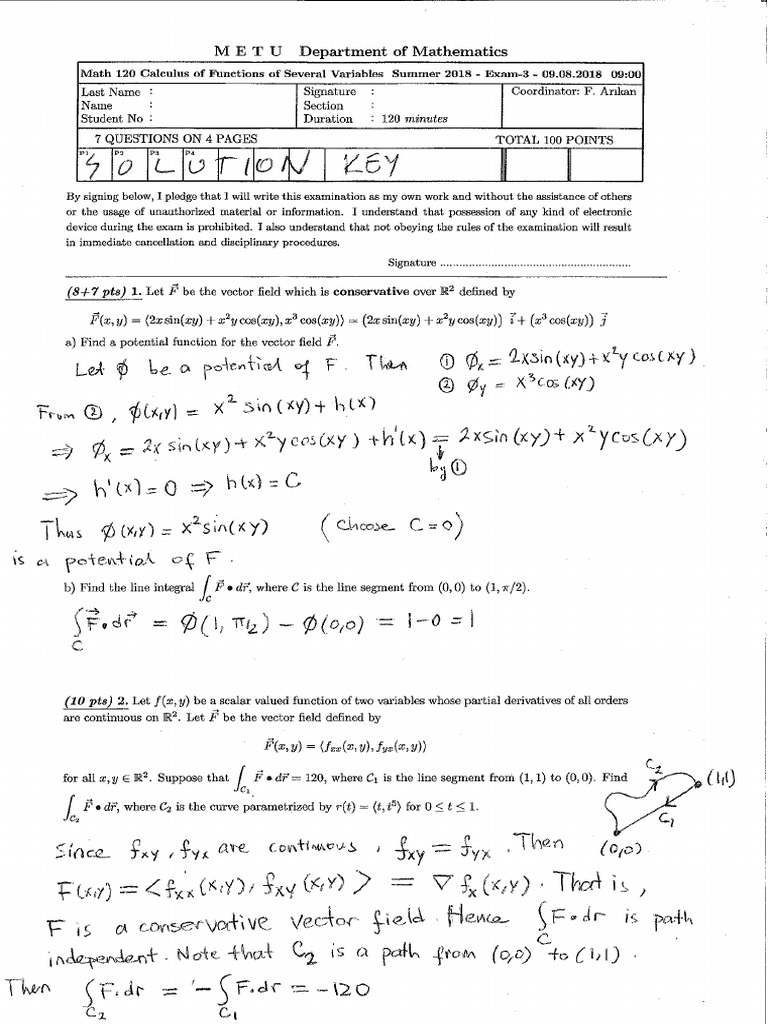 M E T U Department of Mathematics
Math 120 Calculus of Functions of Several Variables Summer 2018 - Exam-3 - 09.08.2018 09:00
Last Name : Signature : Coordinator: F. Arıkan
Name : Section
Student No : Duration : 120 minutes
7 QUESTIONS ON 4 PAGES TOTAL 100 POINTS
P1 P2 P3 P4
SOLUTION KEY
By signing below, I pledge that I will write this examination as my own work and without the assistance of others
or the usage of unauthorized material or information. I understand that possession of any kind of electronic
device during the exam is prohibited. I also understand that not obeying the rules of the examination will result
in immediate cancellation and disciplinary procedures.
Signature ............................................................
(8+7 pts) 1. Let F⃗ be the vector field which is conservative over ℝ² defined by
F⃗(x, y) = ⟨2x sin(xy) + x²y cos(xy), x³ cos(xy)⟩ = (2x sin(xy) + x²y cos(xy)) i⃗ + (x³ cos(xy)) j⃗
a) Find a potential function for the vector field F⃗.
Let ϕ be a potential of F. Then ① ϕₓ = 2x sin(xy) + x²y cos(xy)
② ϕy = x³cos(xy)
From ②, ϕ(x,y) = x² sin(xy) + h(x)
⇒ ϕₓ = 2x sin(xy) + x²y cos(xy) + h'(x) = 2x sin(xy) + x²y cos(xy)
↓
by ①
⇒ h'(x) = 0 ⇒ h(x) = C
Thus ϕ(x,y) = x² sin(xy) (choose C = 0)
is a potential of F.
b) Find the line integral ∫_C F⃗ • dr⃗, where C is the line segment from (0, 0) to (1, π/2).
∫_C F⃗ • dr⃗ = ϕ(1, π/2) − ϕ(0,0) = 1 − 0 = 1
(10 pts) 2. Let f(x, y) be a scalar valued function of two variables whose partial derivatives of all orders
are continuous on ℝ². Let F⃗ be the vector field defined by
F⃗(x, y) = ⟨fₓₓ(x, y), f_yx(x, y)⟩
for all x, y ∈ ℝ². Suppose that ∫_C₁ F⃗ • dr⃗ = 120, where C₁ is the line segment from (1, 1) to (0, 0). Find
∫_C₂ F⃗ • dr⃗, where C₂ is the curve parametrized by r(t) = ⟨t, t⁵⟩ for 0 ≤ t ≤ 1.
C₂ (1,1)
C₁
(0,0)
Since f_xy, f_yx are continuous, f_xy = f_yx. Then
F(x,y) = ⟨f_xx(x,y), f_xy(x,y)⟩ = ∇f_x(x,y). That is,
F is a conservative vector field. Hence ∫_C F • dr is path
independent. Note that C₂ is a path from (0,0) to (1,1).
Then ∫_C₂ F.dr = −∫_C₁ F.dr = −120